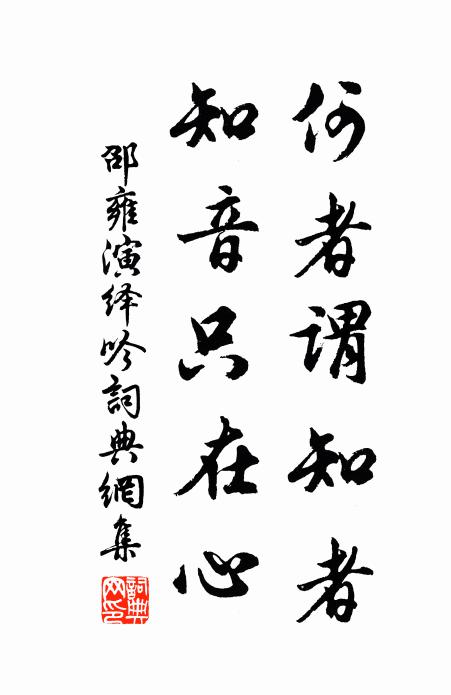 何者謂知者
知音只在心
邵雍演绎吟詞典網集
詞典网印